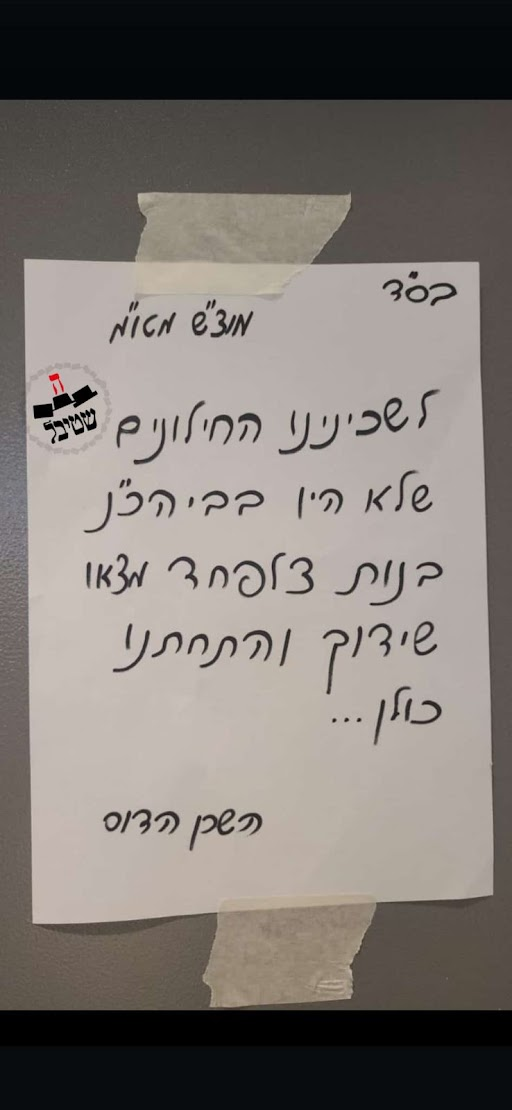 בס"ד
מוצ"ש מטו"מ
ה
שטיבל
לשכינינו החילונים
שלא היו בביהכ"נ
בנות צלפחד מצאו
שידוך והתחתנו
כולן...
השכן הדוס